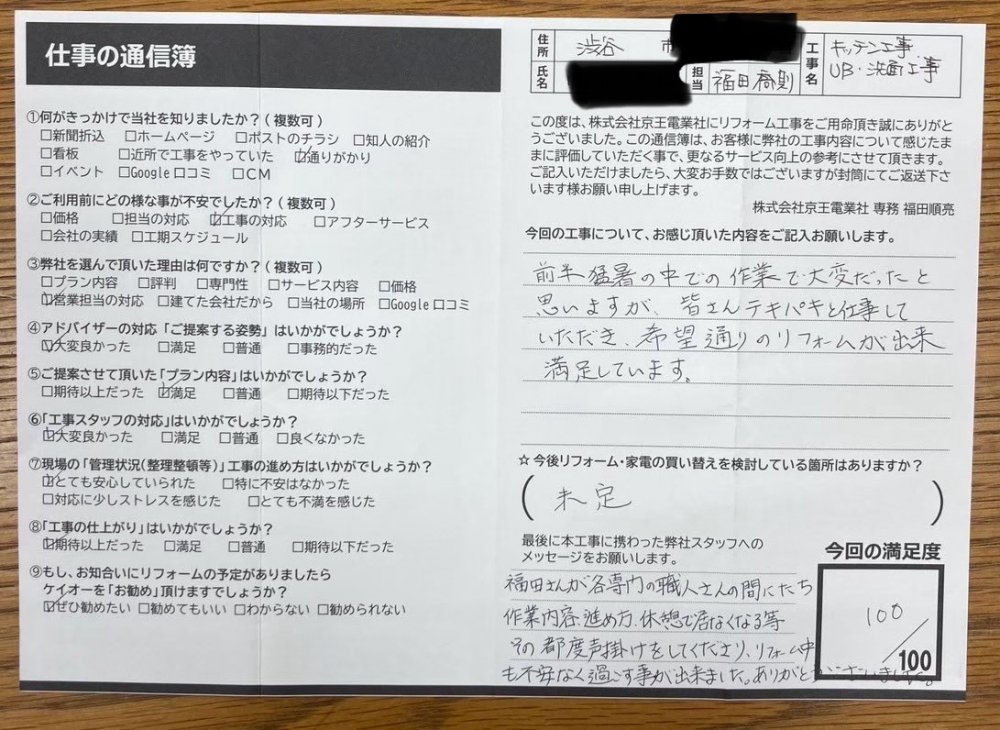 仕事の通信簿
①何がきっかけで当社を知りましたか?(複数可)
□新聞折込 □ホームページ □ポストのチラシ □知人の紹介
□看板 □近所で工事をやっていた ☑通りがかり
□イベント □Google口コミ □CM
②ご利用前にどの様な事が不安でしたか?(複数可)
□価格 □担当の対応 ☑工事の対応 □アフターサービス
□会社の実績 □工期スケジュール
③弊社を選んで頂いた理由は何ですか?(複数可)
□プラン内容 □評判 □専門性 □サービス内容 □価格
☑営業担当の対応 □建てた会社だから □当社の場所 □Google口コミ
④アドバイザーの対応「ご提案する姿勢」はいかがでしょうか?
☑大変良かった □満足 □普通 □事務的だった
⑤ご提案させて頂いた「プラン内容」はいかがでしょうか?
□期待以上だった ☑満足 □普通 □期待以下だった
⑥「工事スタッフの対応」はいかがでしょうか?
☑大変良かった □満足 □普通 □良くなかった
⑦現場の「管理状況(整理整頓等)」工事の進め方はいかがでしょうか?
☑とても安心していられた □特に不安はなかった
□対応に少しストレスを感じた □とても不満を感じた
⑧「工事の仕上がり」はいかがでしょうか?
☑期待以上だった □満足 □普通 □期待以下だった
⑨もし、お知合いにリフォームの予定がありましたら
ケイオーを「お勧め」頂けますでしょうか?
☑ぜひ勧めたい □勧めてもいい □わからない □勧められない
住所 渋谷 市
氏名
担当 福田
工事名 キッチン工事
UB・洗面工事
この度は、株式会社京王電業社にリフォーム工事をご用命頂き誠にありがと
うございました。この通信簿は、お客様に弊社の工事内容について感じたま
まに評価していただく事で、更なるサービス向上の参考にさせて頂きます。
ご記入いただけましたら、大変お手数ではございますが封筒にてご返送下さ
います様お願い申し上げます。
株式会社京王電業社 専務 福田順亮
今回の工事について、お感じ頂いた内容をご記入お願いします。
前半猛暑の中での作業で大変だったと
思いますが、皆さんテキパキと仕事して
いただき、希望通りのリフォームが出来
満足しています。
☆今後リフォーム・家電の買い替えを検討している箇所はありますか?
(未定)
最後に本工事に携わった弊社スタッフへの
メッセージをお願いします。
福田さんが各専門の職人さんの間にたち
作業内容、進め方、休憩で居なくなる等
その都度声掛けをしてくださり、リフォーム中
も不安なく過ごす事が出来ました。ありがとうございました。
今回の満足度
100
/100